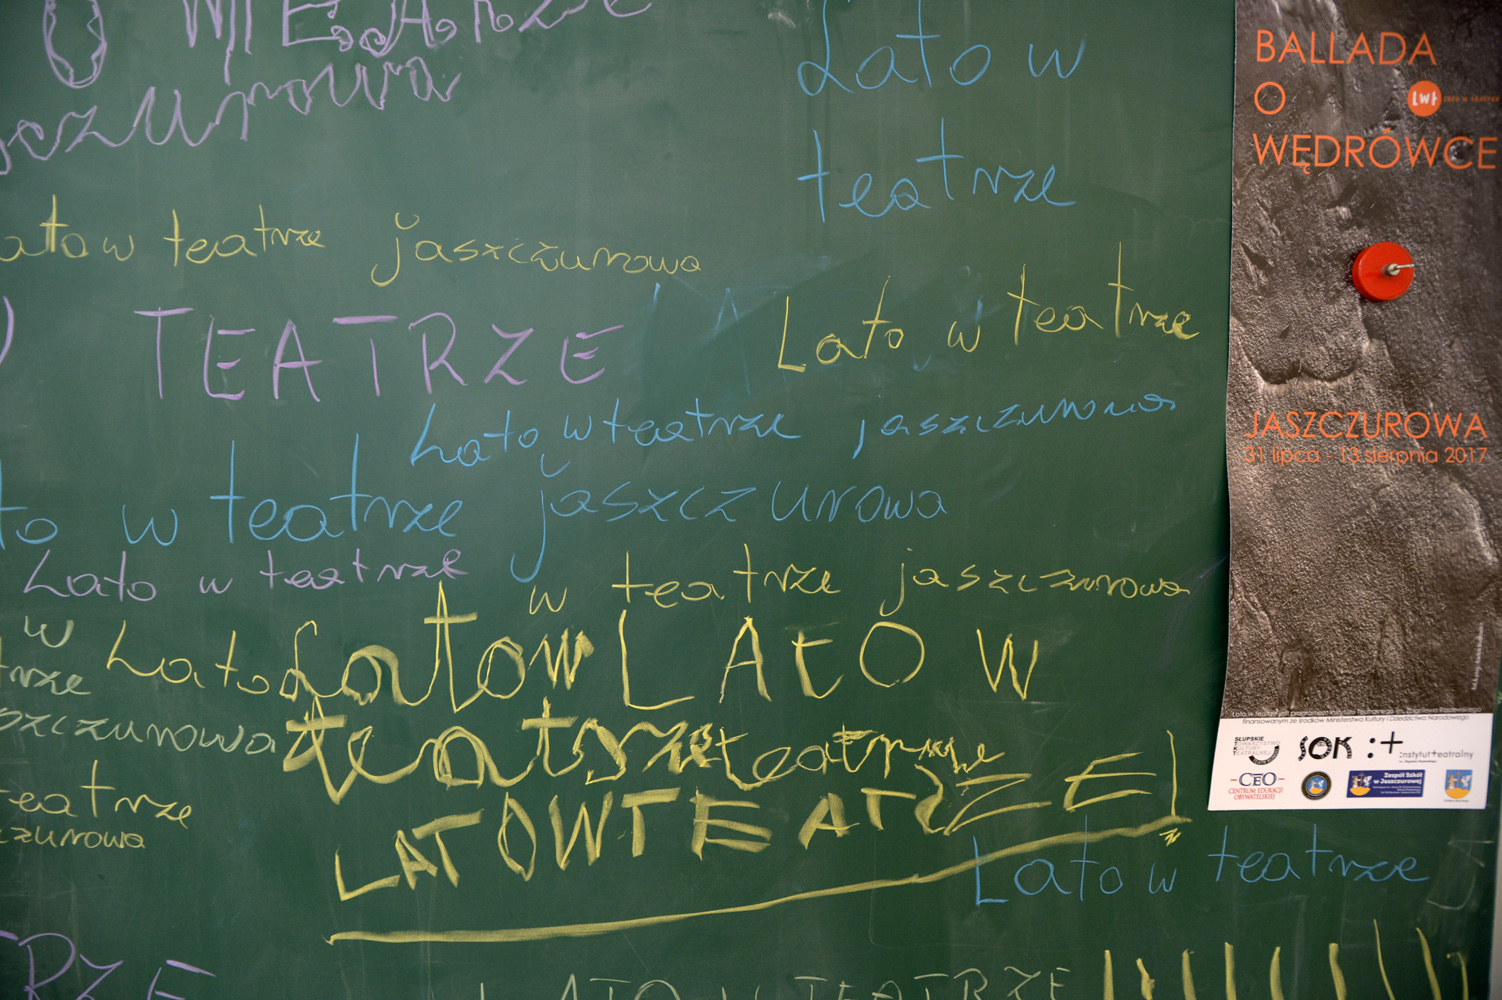 teatrze
szczurowa
Lato w
teatrze
lato w teatrze jaszczurowa
TEATRZE
Lato w teatrze
Lato w teatrze jaszczurowa
to w teatrze jaszczurowa
Lato w teatrze
w teatrze jaszczurowa
w
trze
szczurowa
Lato
Lato w
LAtO W
teatrze
teatrze
LATO W TEATRZE!
teatrze
czurowa
Lato w teatrze
TRZE
LATO W TEATRZE
BALLADA
O
WĘDRÓWCE
lwt
JASZCZUROWA
31 lipca - 13 sierpnia 2017
finansowanym ze środków Ministerstwa Kultury i Dziedzictwa Narodowego
SŁUPSKIE
TOWARZYSTWO
KULTURY
TEATRALNEJ
SOK
:+
instytut+teatralny
CEO
CENTRUM EDUKACJI
OBYWATELSKIEJ
Zespół Szkół
w Jaszczurowej